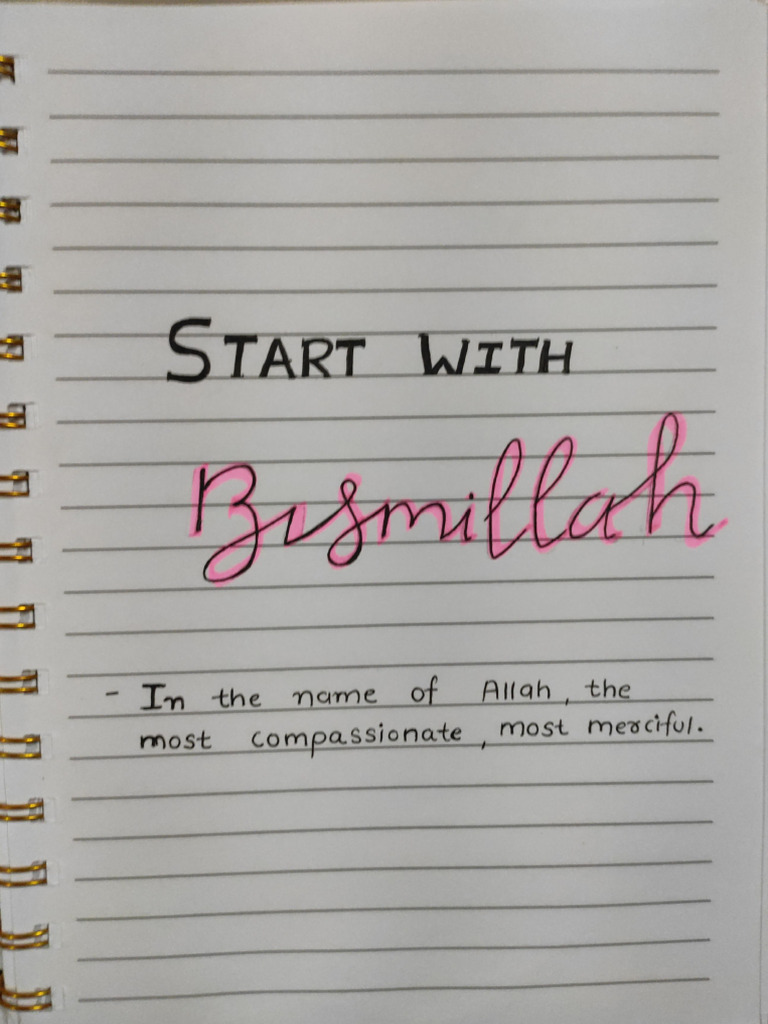 START WITH
Bismillah
- In the name of Allah, the
most compassionate, most merciful.